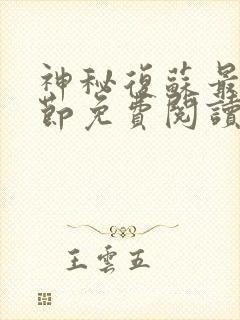 神秘復蘇最
節免費閱讀
王雲五